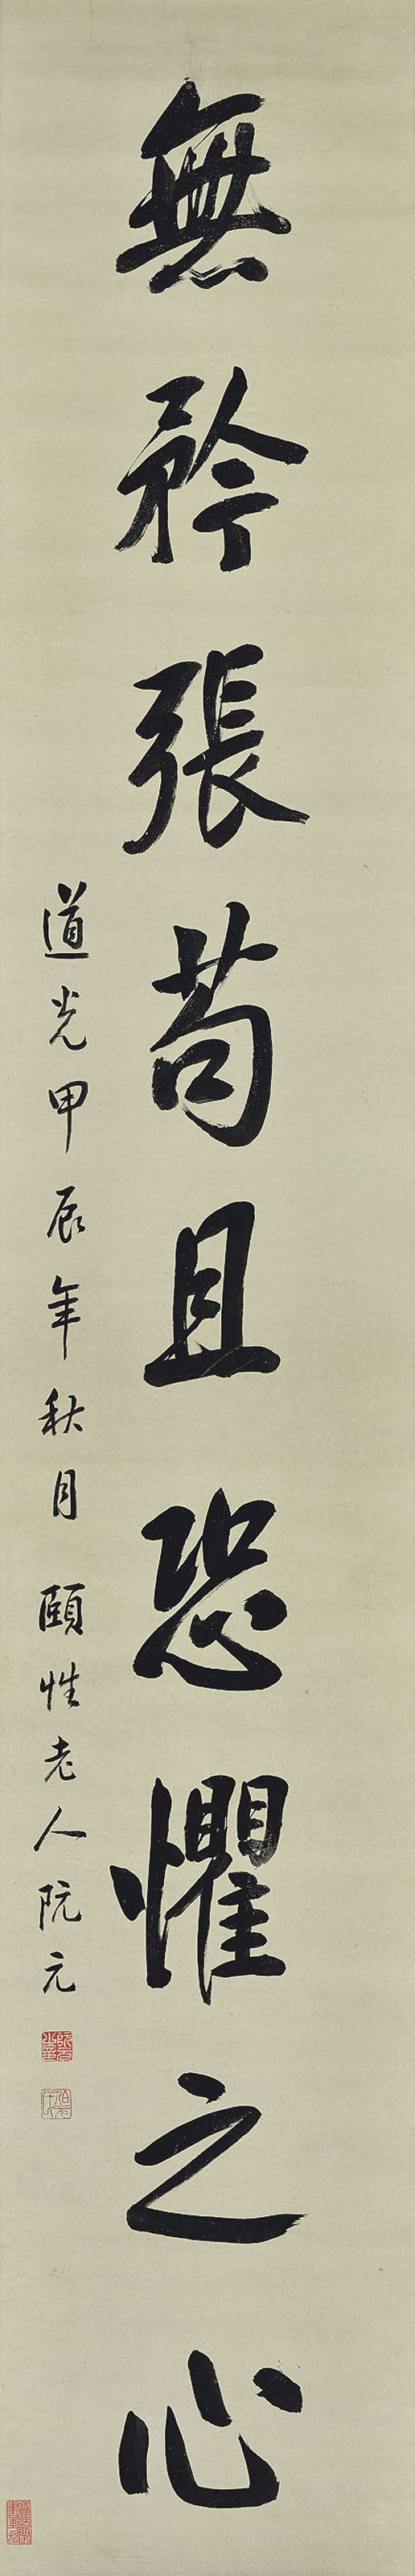 無矜張苟且恐懼之心
道光甲辰年秋月頤性老人阮元